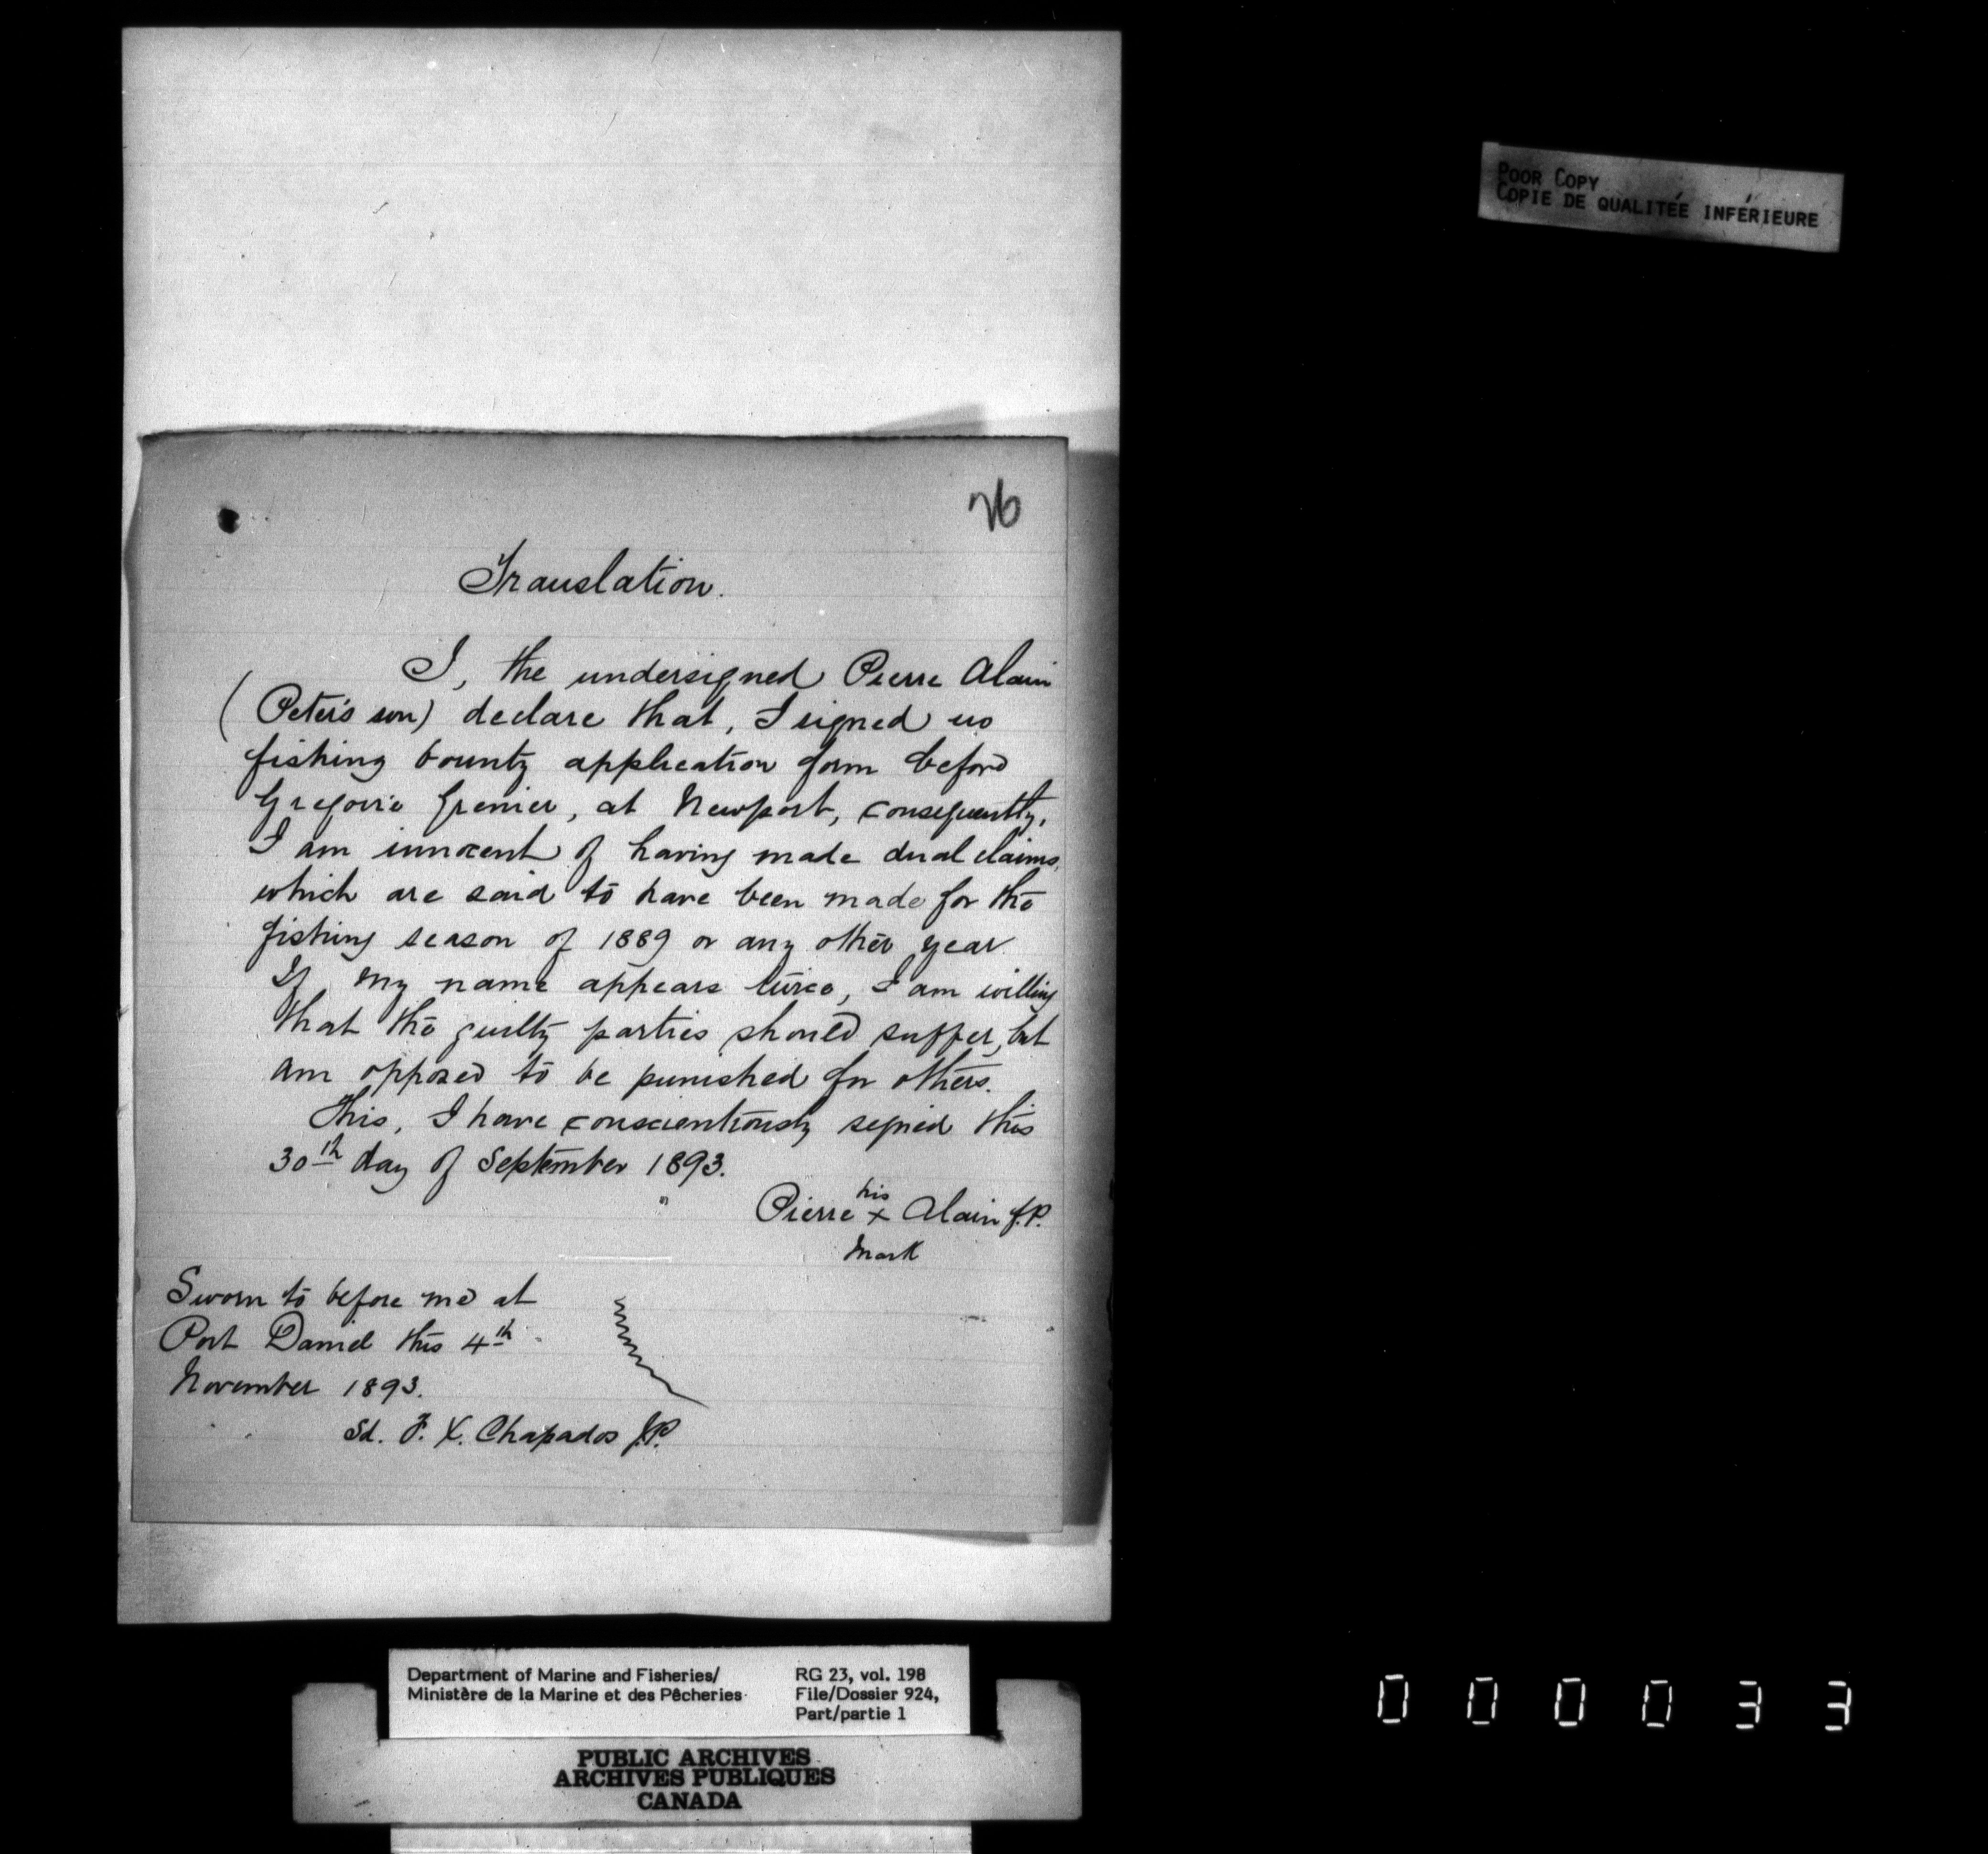 POOR COPY
COPIE DE QUALITÉE INFÉRIEURE
26
Translation.
I, the undersigned Pierre Alain
(Peter's son) declare that, I signed no
fishing bounty application form before
Gregoire Grenier, at Newport, consequently,
I am innocent of having made dual claims,
which are said to have been made for the
fishing season of 1889 or any other year.
If my name appears twice, I am willing
that the guilty parties should suffer, but
am opposed to be punished for others.
This, I have conscientiously signed this
30th day of September 1893.
his
Pierre x Alain J.P.
Mark
Sworn to before me at
Port Daniel this 4th
November 1893.
Sd. F. X. Chapados J.P.
Department of Marine and Fisheries/
Ministère de la Marine et des Pêcheries
RG 23, vol. 198
File/Dossier 924,
Part/partie 1
PUBLIC ARCHIVES
ARCHIVES PUBLIQUES
CANADA
000033